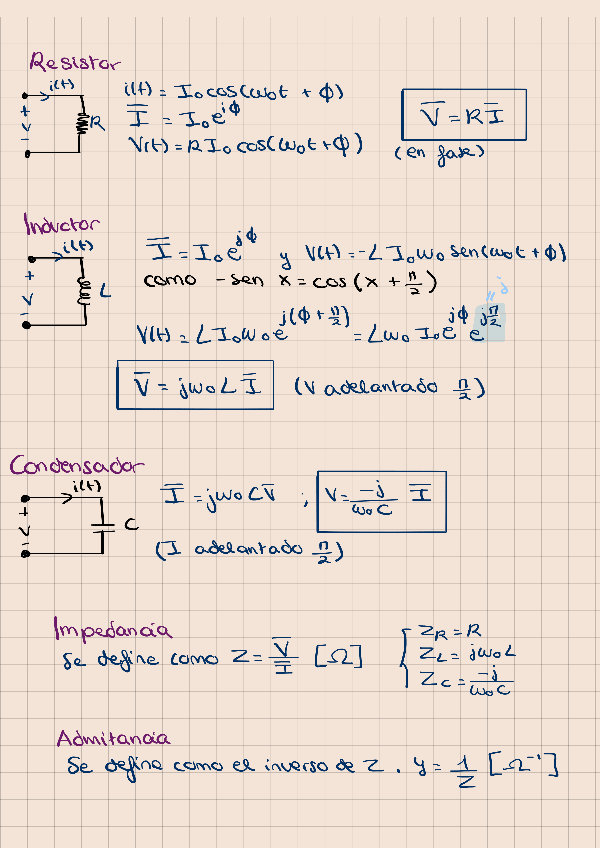 Resistor
i(t)
+
V
-
R
i(t) = I₀cos(ω₀t + ϕ)
I̅ = I₀e^{jϕ}
V(t) = R I₀ cos(ω₀t + ϕ)
V̅ = R I̅
(en fase)
Inductor
i(t)
+
V
-
L
I̅ = I₀e^{jϕ} y V(t) = -L I₀ω₀ sen(ω₀t + ϕ)
como -sen x = cos(x + π/2)
j
"
V(t) = L I₀ω₀e^{j(ϕ + π/2)} = Lω₀ I₀e^{jϕ} e^{jπ/2}
V̅ = jω₀ L I̅ (V adelantado π/2)
Condensador
i(t)
+
V
-
C
I̅ = jω₀ C V̅ ; V = -j/ω₀C I̅
(I adelantado π/2)
Impedancia
Se define como Z = V̅/I̅ [Ω]
{ Z_R = R
Z_L = jω₀L
Z_C = -j/ω₀C
Admitancia
Se define como el inverso de Z. y = 1/Z [Ω⁻¹]